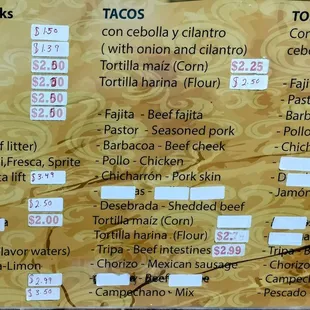 ks
$1.50
$1.39
$2.50
$2.50
$2.50
$2.50
f litter)
i,Fresca, Sprite
ta lift $3.49
$2.50
$2.00
flavor waters)
a-Limon
$2.99
$3.50
TACOS
con cebolla y cilantro
( with onion and cilantro)
Tortilla maíz (Corn) $2.25
Tortilla harina (Flour) $2.50
- Fajita - Beef fajita
- Pastor - Seasoned pork
- Barbacoa - Beef cheek
- Pollo - Chicken
- Chicharrón - Pork skin
as
- Desebrada - Shedded beef
Tortilla maíz (Corn)
Tortilla harina (Flour)
- Tripa - Beef intestines $2.99
- Chorizo - Mexican sausage
- Campechano - Mix
TO
Con
cebo
- Faji
- Past
- Barb
- Pollo
- Chic
- D
- Jamón
- Tripa - B
- Chorizo
- Campec
- Pescado